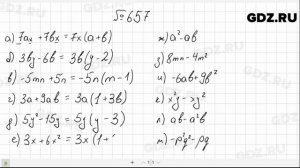 GDZ.RU
№657
а) 7ax + 7bx = 7x(a+b)
б) 3by - 6b = 3b(y - 2)
в) -5mn + 5n = -5n(m-1)
г) 3a + 9ab = 3a(1+3b)
д) 5y² - 15y = 5y(y - 3)
е) 3x + 6x² = 3x(1+
ж) a² - ab
з) 8mn - 4m²
и) -6ab + 9b²
к) x²y - xy²
л) ab - a²b
м) -p²q² - pq
GDZ.RU